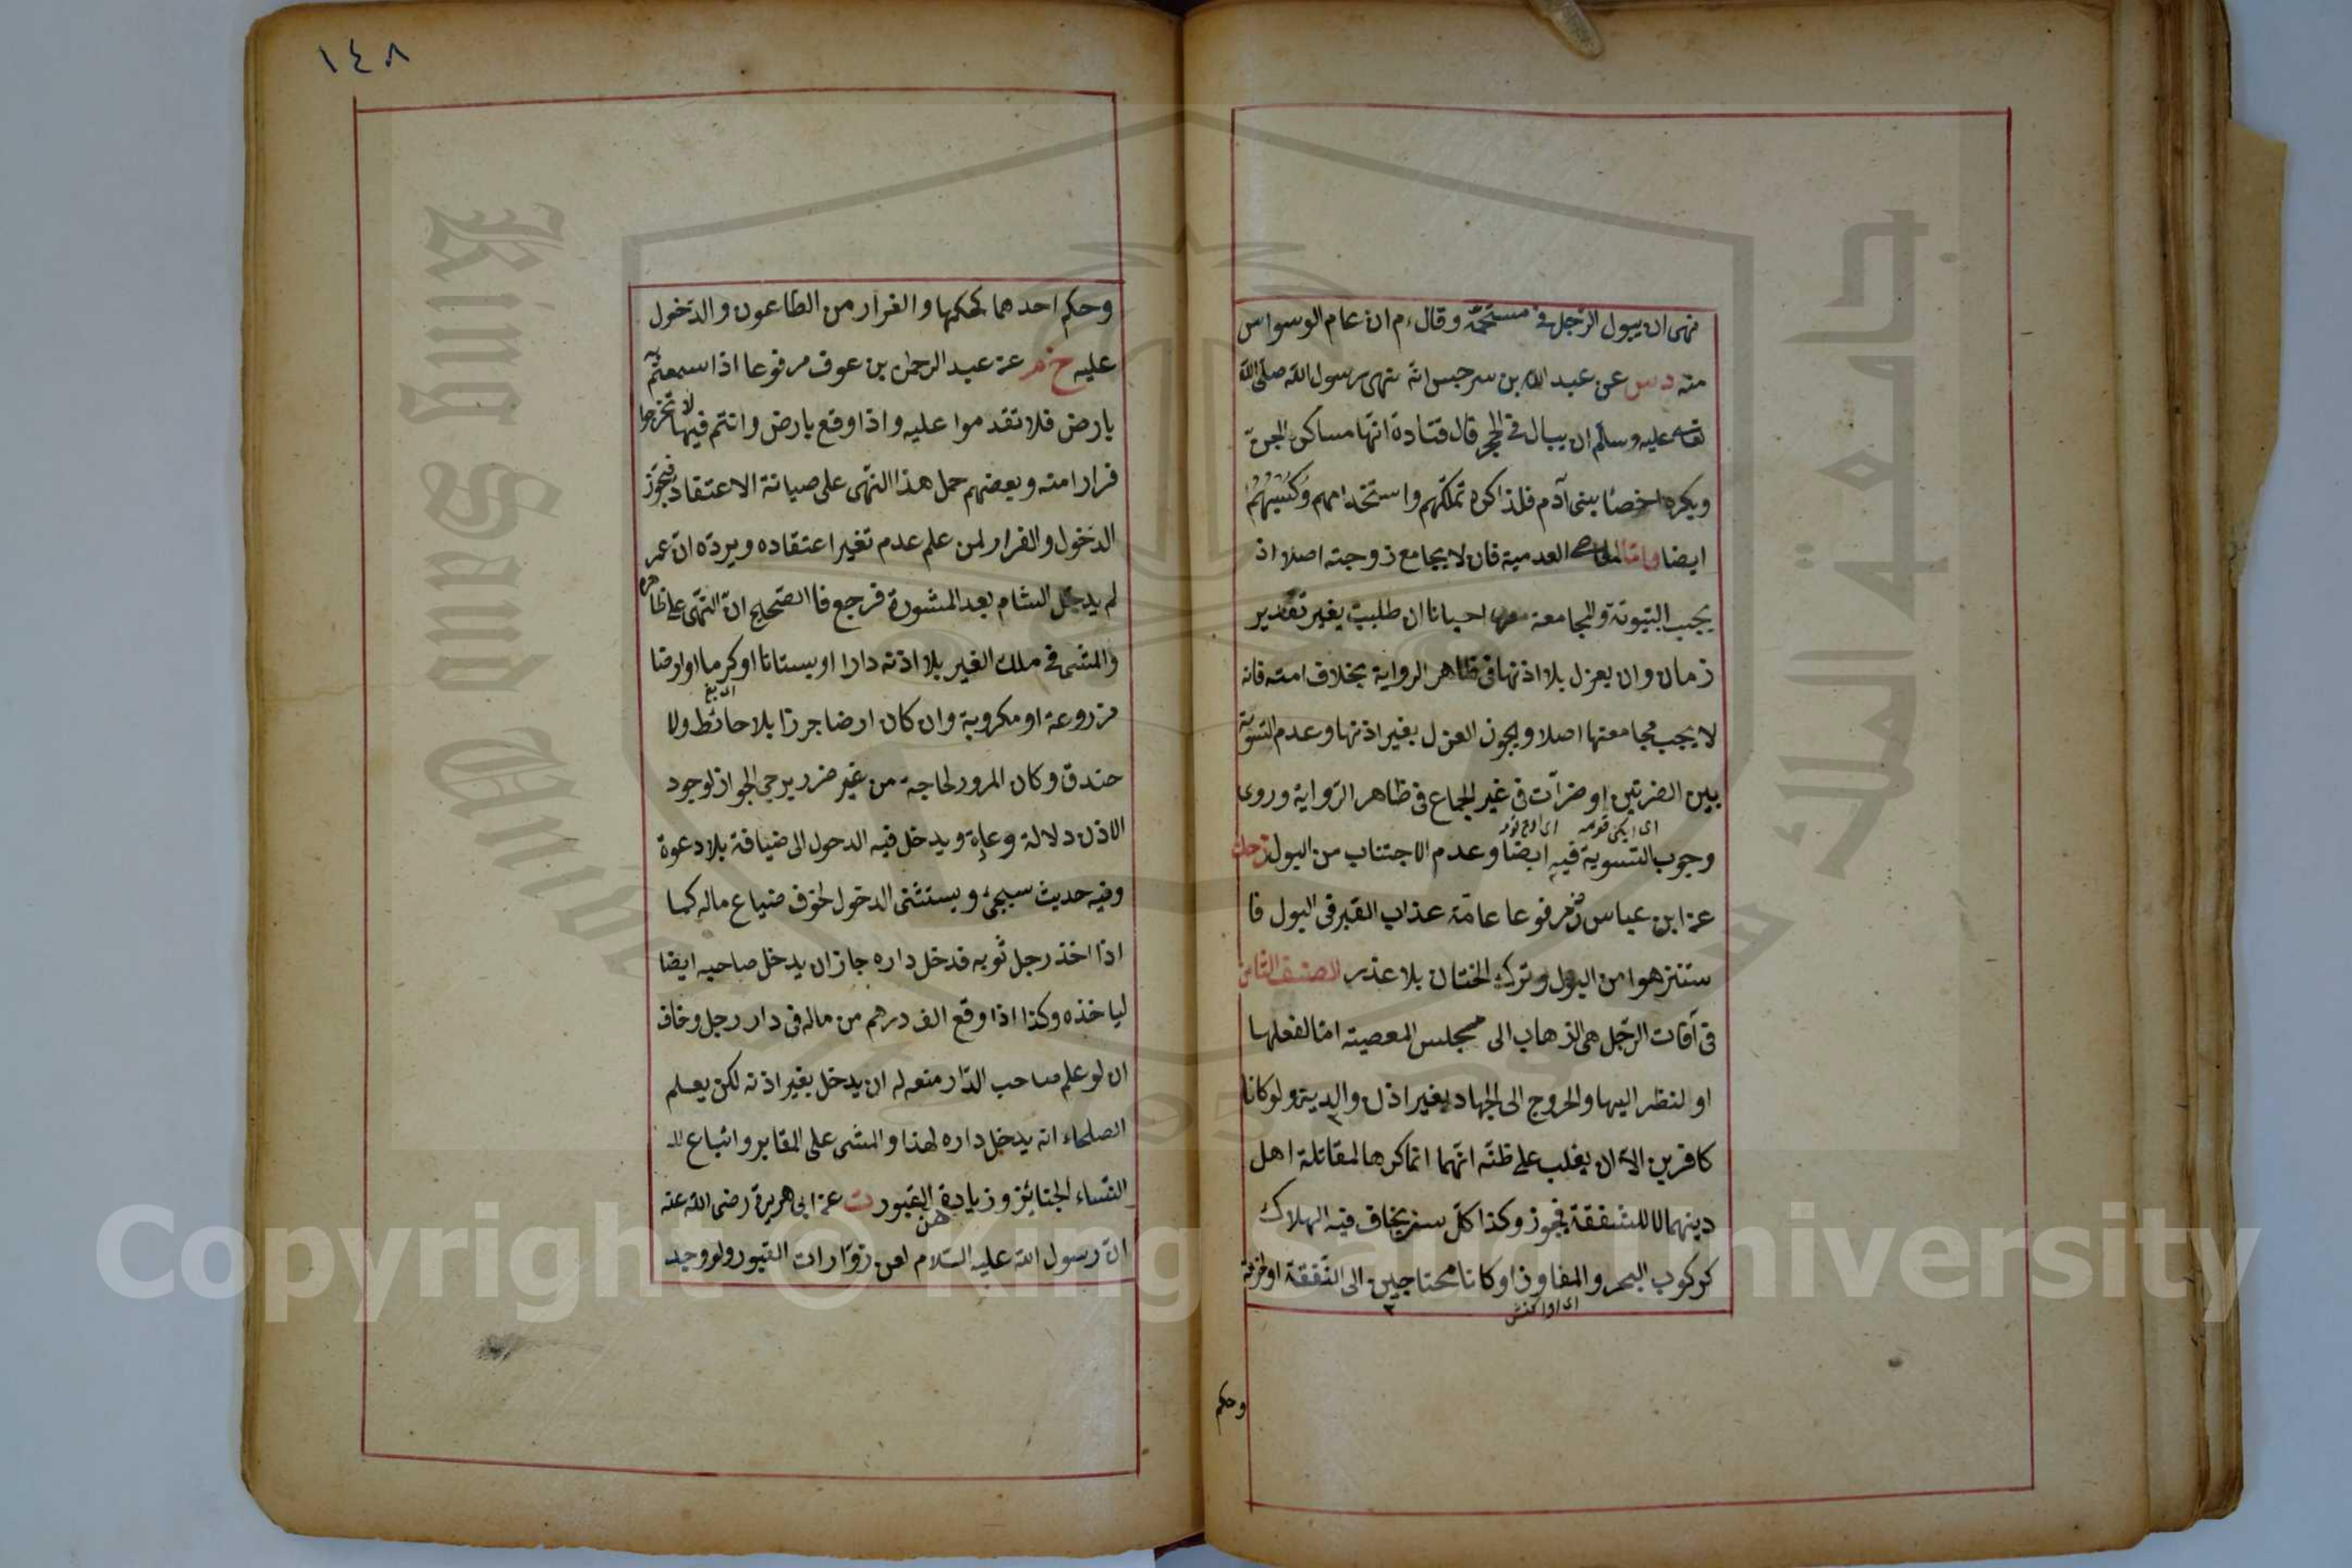 نهى ان يبول الرّجل فى مستحمّه وقال م ان عام الوسواس
منه دس عن عبد الله بن سرجس انّه نهى رسول الله صلّى الله
تعالى عليه وسلّم ان يبال فى الجحر قال قتادة انّها مساكن الجنّ
ويكره اخصاء بنى آدم فلذا كره تملّكهم واستخدامهم وكسبهم
ايضا وامّا العدمية فان لا يجامع زوجته اصلا اذ
يجب البيتوتة والمجامعة معها احيانا ان طلبت بغير تقدير
زمان وان يعزل بلا اذنها فى ظاهر الرواية بخلاف امته فانه
لا يجب مجامعتها اصلا ويجوز العزل بغير اذنها وعدم التسوية
بين الضرتين او ضرّات فى غير الجماع فى ظاهر الرّواية وروى
وجوب التسوية فيه ايضا وعدم الاجتناب من البول
عن ابن عباس رض مرفوعا عامّة عذاب القبر فى البول فا
ستنزهوا من البول وترك الختان بلا عذر الصنف الثامن
فى آفات الرّجل هى الذهاب الى مجلس المعصية امّا لفعلها
او لنظر اليها والخروج الى الجهاد بغير اذن والديه ولو كانا
كافرين الاّ ان يغلب على ظنّه انّهما انّما كرها لمقاتلة اهل
دينهما لا للشفقة فيجوز وكذا كلّ سفر يخاف فيه الهلاك
كركوب البحر والمفاوز او كانا محتاجين الى النّفقة او خدمة
وحكم
١٤٨
وحكم احدهما كحكمها والفرار من الطّاعون والدّخول
عليه خ م عن عبد الرحمن بن عوف مرفوعا اذا سمعتم به
بارض فلا تقدموا عليه واذا وقع بارض وانتم فيها لا تخرجوا
فرارا منه وبعضهم حمل هذا النّهى على صيانة الاعتقاد فيجوّز
الدّخول والفرار لمن علم عدم تغير اعتقاده ويردّه انّ عمر
لم يدخل الشام بعد المشورة فرجع فاالصّحيح انّ النّهى على ظاهره
والمشى فى ملك الغير بلا اذنه دارا او بستانا او كرما او ارضا
مزروعة او مكروبة وان كان ارضا جرزا بلا حائط ولا
خندق وكان المرور لحاجة من غير ضرر يرجى الجواز لوجود
الاذن دلالة وعادة ويدخل فيه الدخول الى ضيافة بلا دعوة
وفيه حديث سيجئ ويستثنى الدخول لخوف ضياع ماله كما
اذا اخذ رجل ثوبه فدخل داره جاز ان يدخل صاحبه ايضا
لياخذه وكذا اذا وقع الف درهم من ماله فى دار رجل وخاف
ان لو علم صاحب الدّار منعه له ان يدخل بغير اذنه لكن يعلم
الصلحاء انه يدخل داره لهذا والمشى على المقابر واتباع
النّساء الجنائز وزيارة القبور ت عن ابى هريرة رضى الله عنه
انّ رسول الله عليه السّلام لعن زوّارات القبور ولو وجد